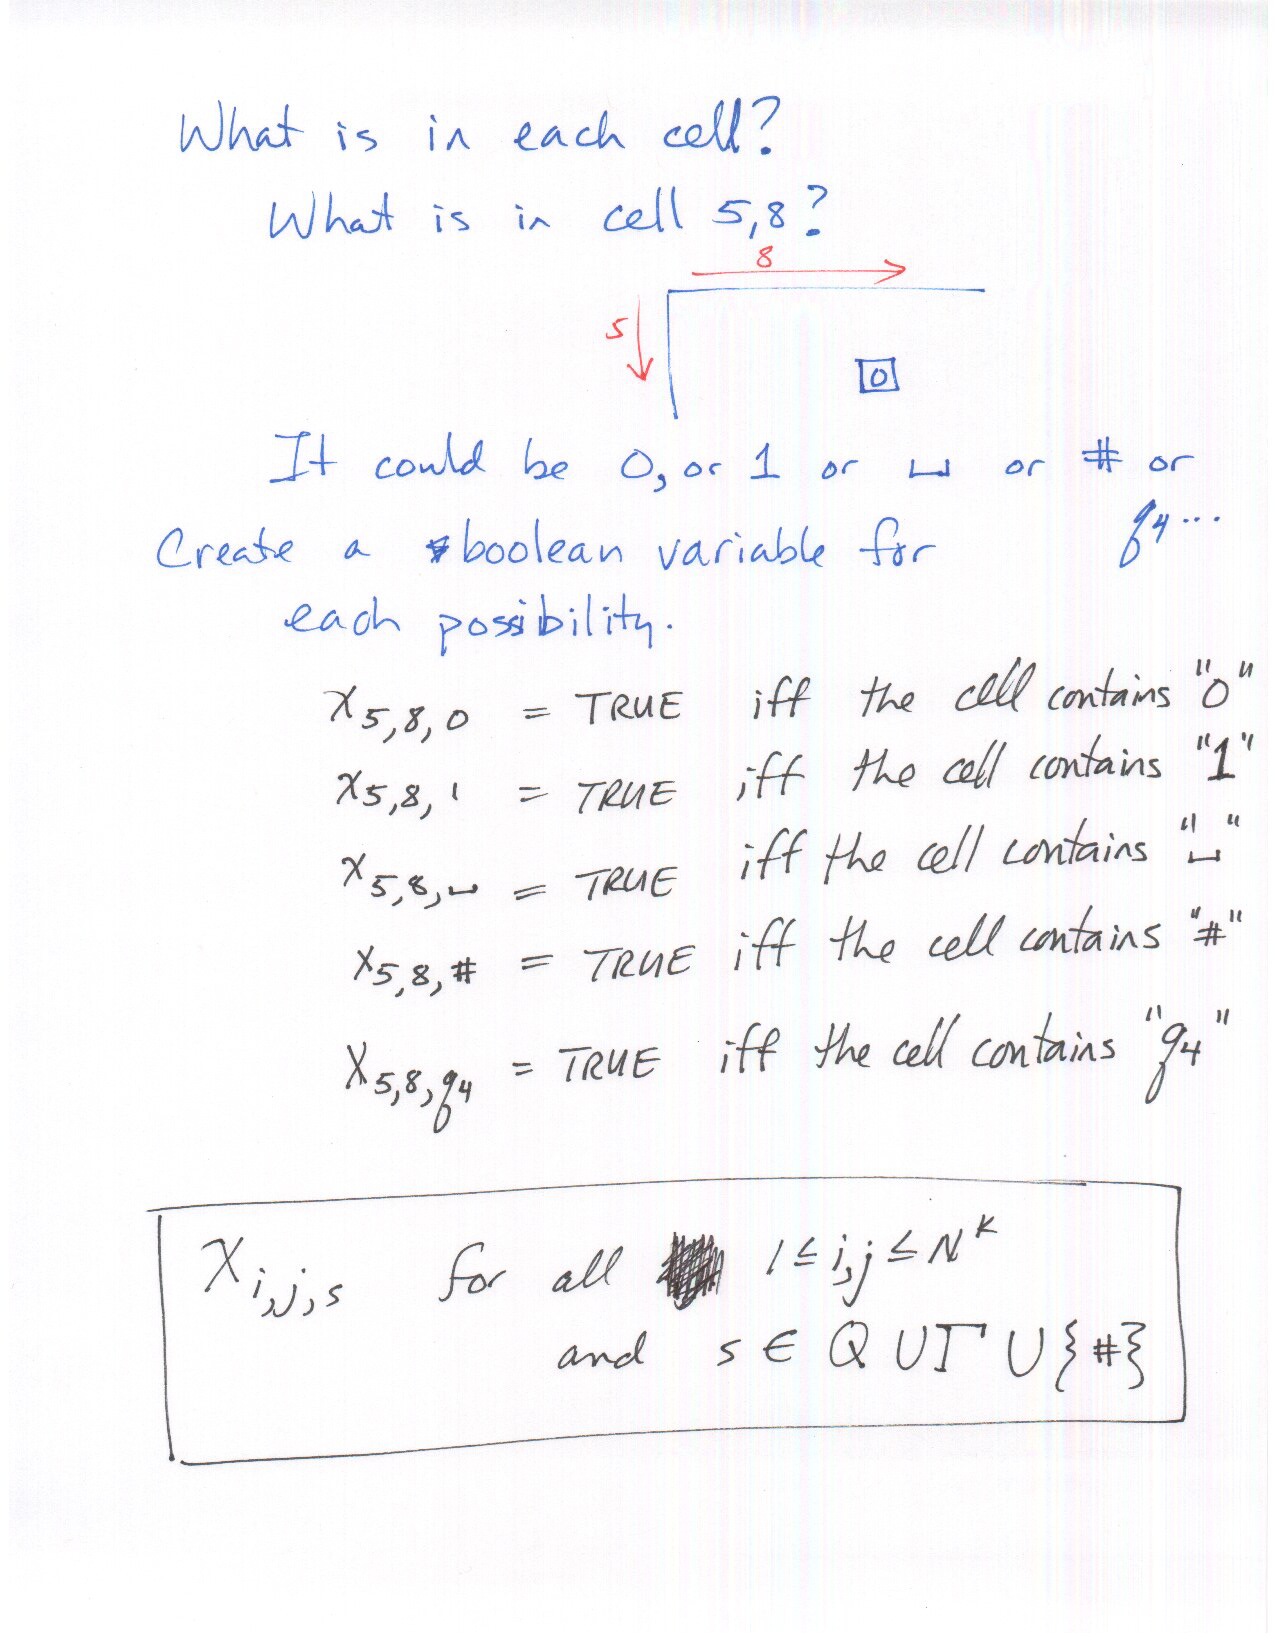 What is in each cell?
What is in cell 5,8?
8
5
0
It could be 0, or 1 or ⊔ or # or
q4...
Create a boolean variable for
each possibility.
X5,8,0 = TRUE iff the cell contains "0"
X5,8,1 = TRUE iff the cell contains "1"
X5,8,⊔ = TRUE iff the cell contains "⊔"
X5,8,# = TRUE iff the cell contains "#"
X5,8,q4 = TRUE iff the cell contains "q4"
Xi,j,s for all 1 ≤ i,j ≤ N^K
and s ∈ Q ∪ Γ ∪ {#}